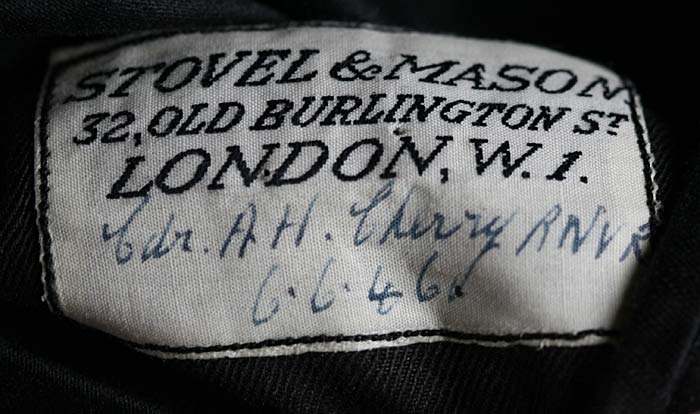 STOVEL & MASON
32, OLD BURLINGTON ST
LONDON, W.1.
Cdr. A.H. Cherry RNVR
6.6.46.